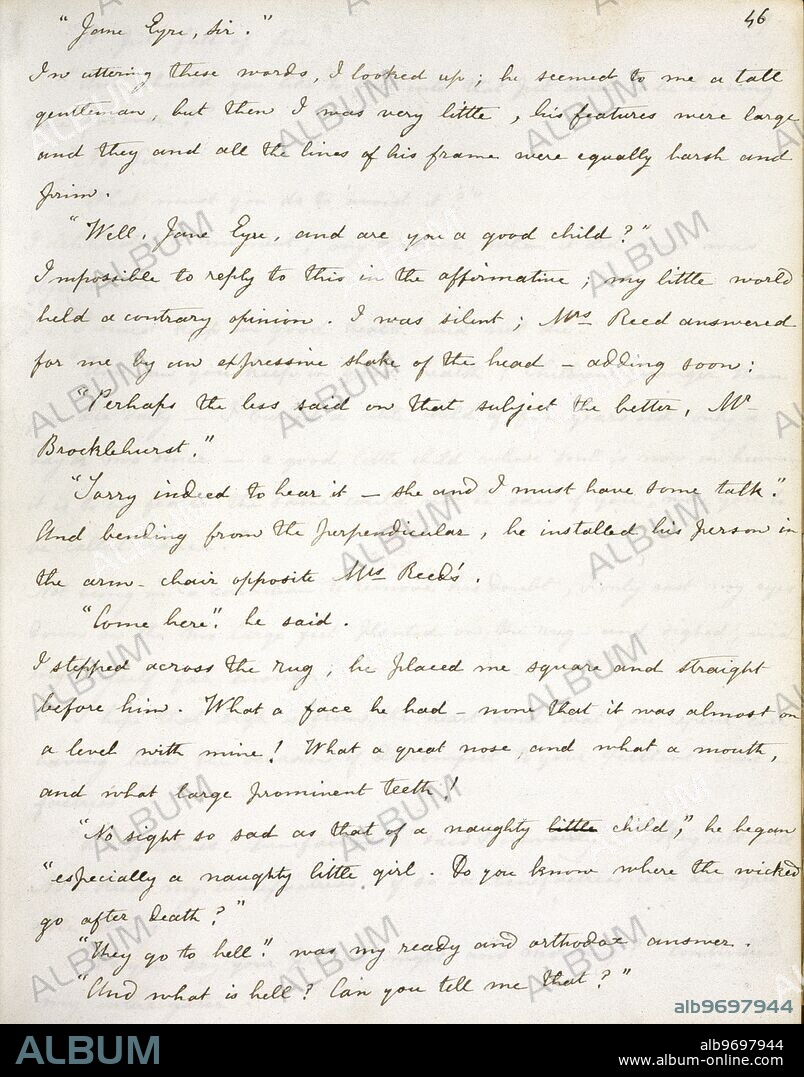 46
"Jane Eyre, sir."
In uttering these words, I looked up; he seemed to me a tall
gentleman, but then I was very little, his features were large
and they and all the lines of his frame were equally harsh and
prim.
"Well, Jane Eyre, and are you a good child?"
Impossible to reply to this in the affirmative; my little world
held a contrary opinion. I was silent; Mrs Reed answered
for me by an expressive shake of the head – adding soon:
"Perhaps the less said on that subject the better, Mr
Brocklehurst."
"Sorry indeed to hear it – she and I must have some talk."
And bending from the perpendicular, he installed his person in
the arm-chair opposite Mrs Reed's.
"Come here". he said.
I stepped across the rug; he placed me square and straight
before him. What a face he had – now that it was almost on
a level with mine! What a great nose, and what a mouth,
and what large prominent teeth!
"No sight so sad as that of a naughty little child," he began
"especially a naughty little girl. Do you know where the wicked
go after death?"
"They go to hell". was my ready and orthodox answer.
"And what is hell? Can you tell me that?"
ALBUM
alb9697944
ALBUM
alb9697944
www.album-online.com